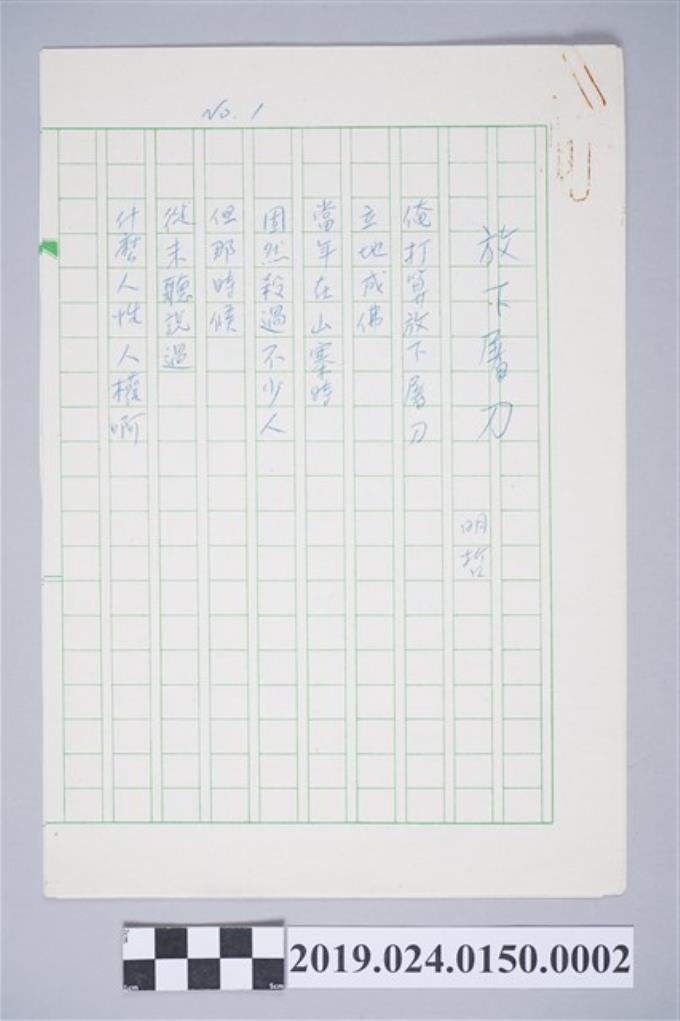 No. 1
放下屠刀
明哲
俺打算放下屠刀
立地成佛
當年在山寨時
固然殺過不少人
但那時候
從未聽說過
什麼人性人權啊
2019.024.0150.0002